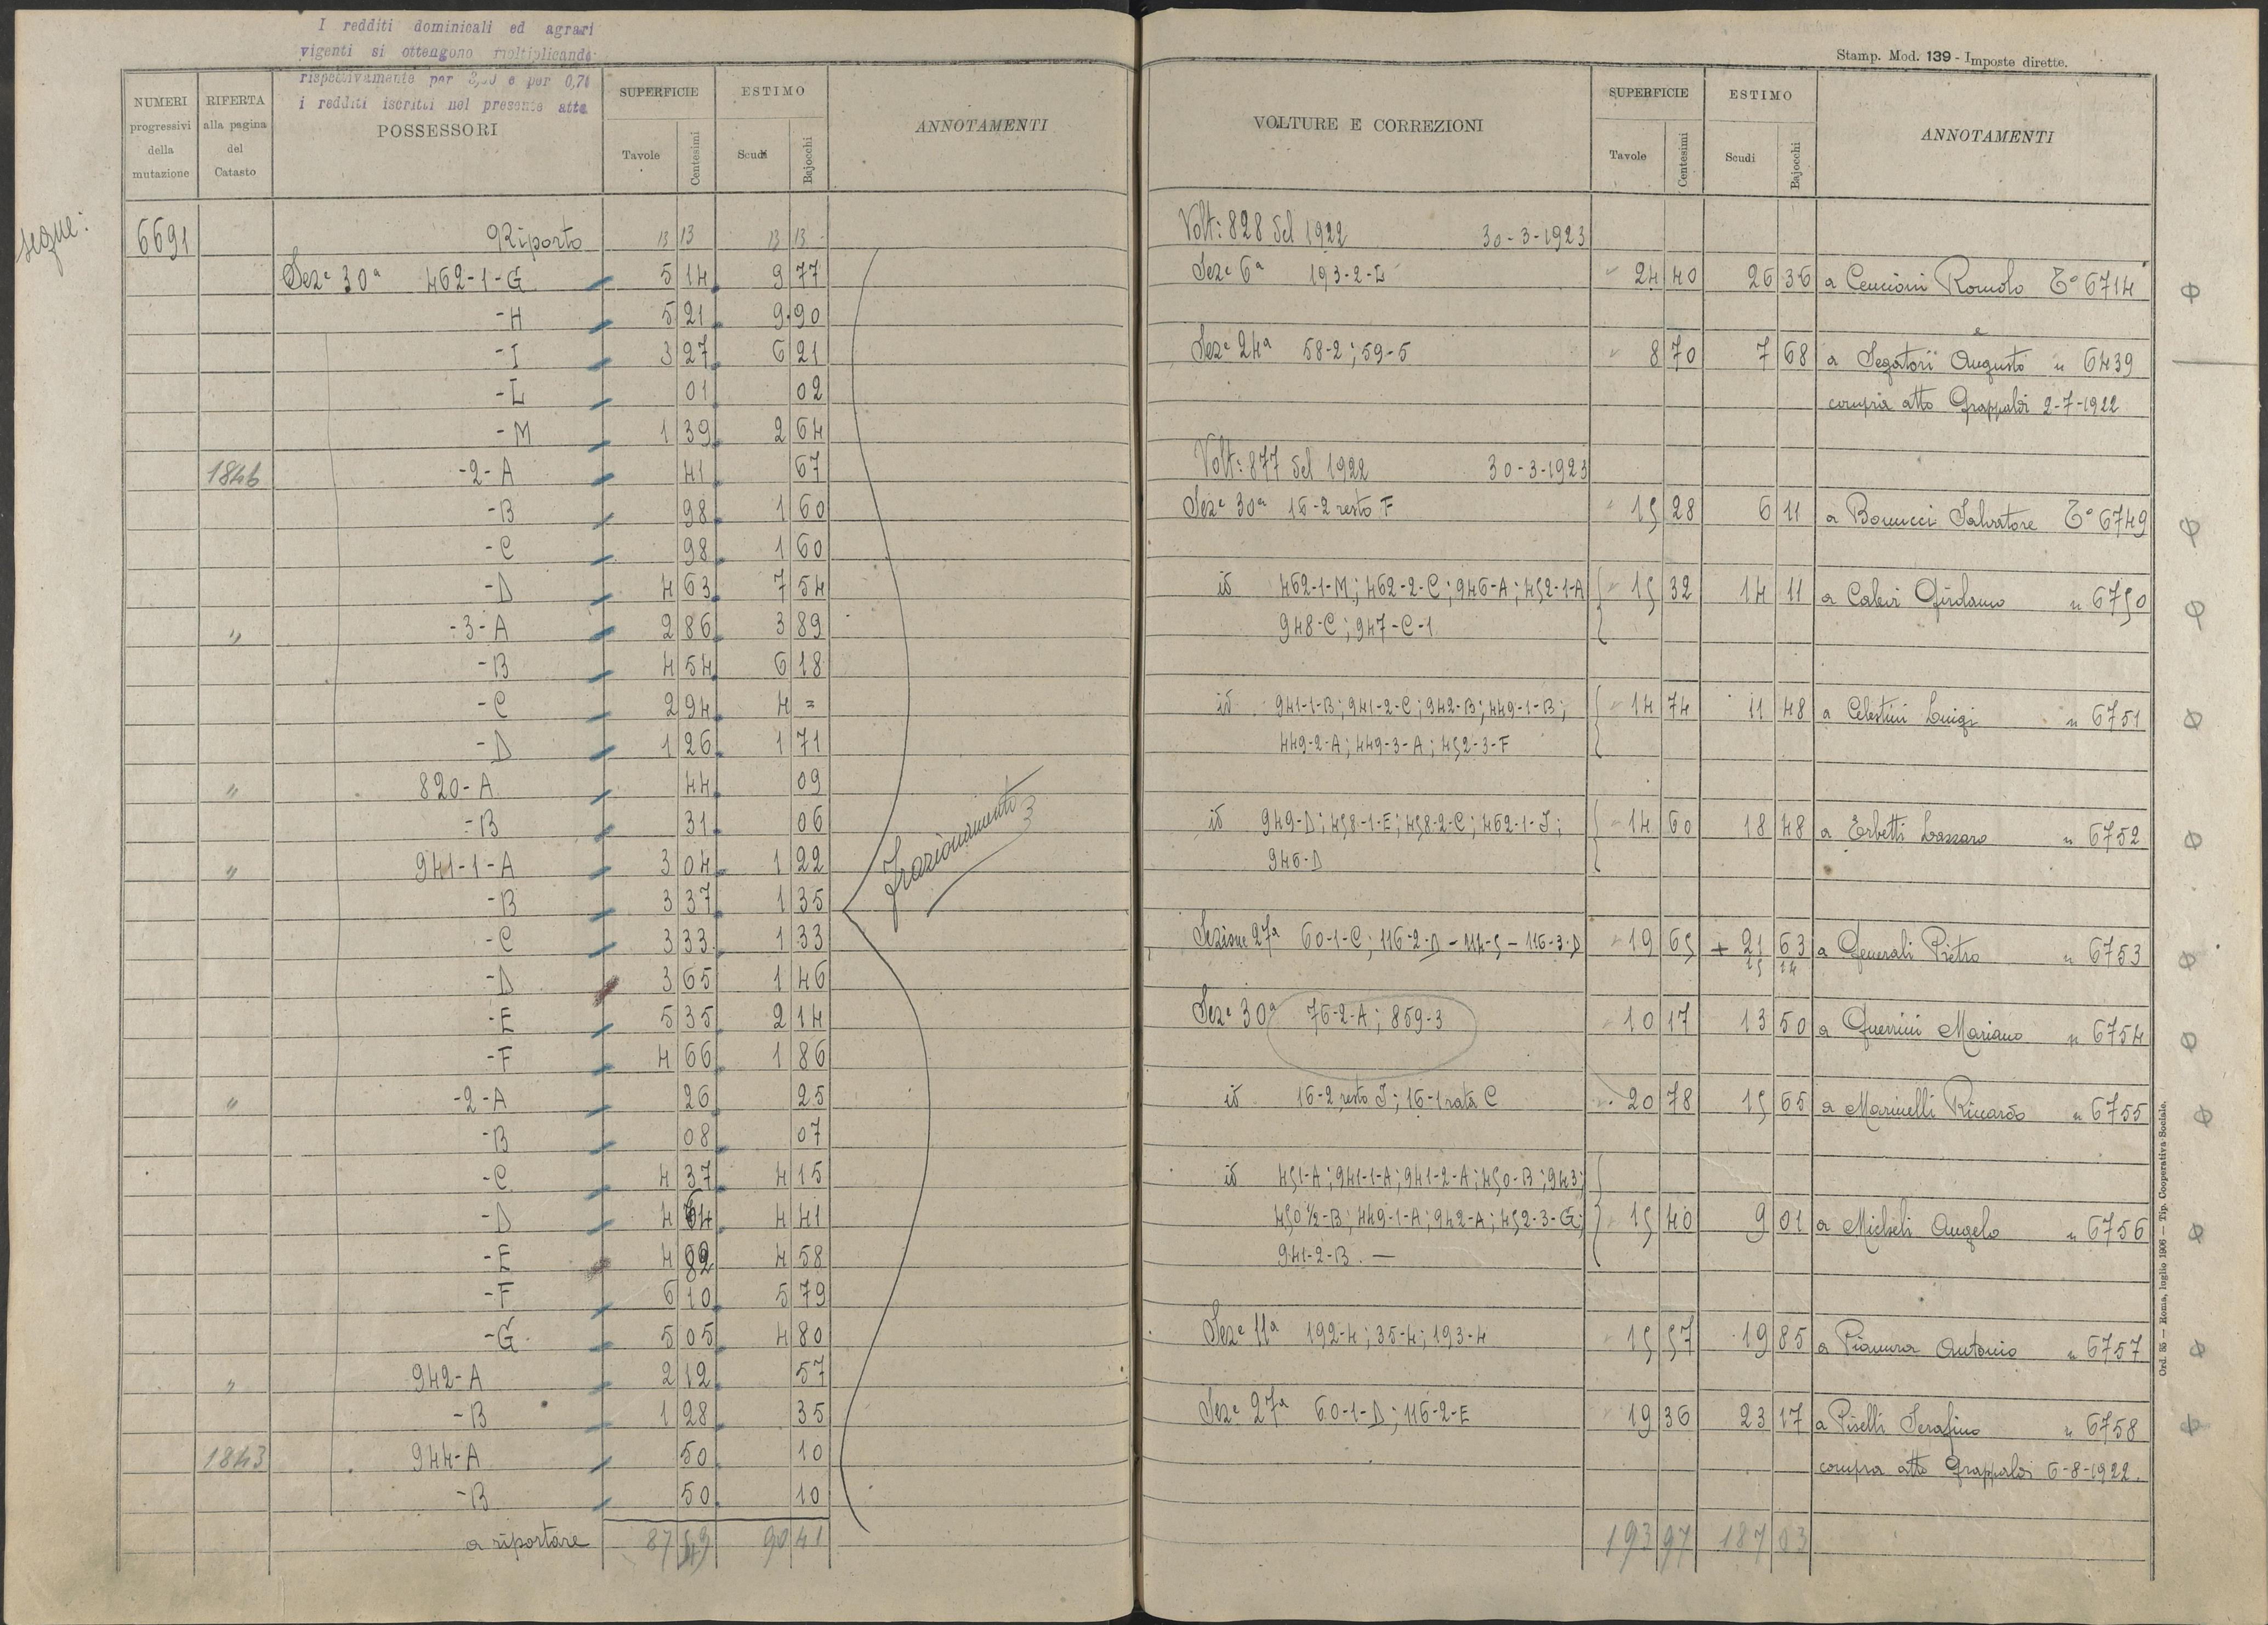 I redditi dominicali ed agrari
vigenti si ottengono moltiplicando
rispettivamente per e per 0,70
i redditi iscritti nel presente atto
Stamp. Mod. 139 - Imposte dirette.
NUMERI progressivi della mutazione
RIFERTA alla pagina del Catasto
POSSESSORI
SUPERFICIE Tavole Centesimi
ESTIMO Scudi Bajocchi
ANNOTAMENTI
segue:
6691 Riporto 13 13 13 13
Seze 30a 462-1-G 5 14 9 77
-H 5 21 9 90
-I 3 27 6 21
-L 01 02
-M 1 39 2 64
1846 -2-A 41 67
-B 98 1 60
-C 98 1 60
-D 4 63 7 54
" -3-A 2 86 3 89
-B 4 54 6 18
-C 2 94 4 =
-D 1 26 1 71
" 820-A 44 09
-B 31 06
" 941-1-A 3 04 1 22
-B 3 37 1 35
-C 3 33 1 33
-D 3 65 1 46
-E 5 35 2 14
-F 4 66 1 86
" -2-A 26 25
-B 08 07
-C 4 37 4 15
-D 4 64 4 41
-E 4 82 4 58
-F 6 10 5 79
-G 5 05 4 80
" 942-A 2 12 57
-B 1 28 35
1843 944-A 50 10
-B 50 10
a riportare 87 49 90 41
Frazionamento
VOLTURE E CORREZIONI
SUPERFICIE Tavole Centesimi
ESTIMO Scudi Bajocchi
ANNOTAMENTI
Volt: 828 del 1922 30-3-1923
Seze 6a 193-2-L 24 40 26 36 a Cencioni Romolo To 6714
e
Seze 24a 58-2; 59-5 8 70 7 68 a Segatori Augusto " 6439
compra atto Grappaldi 2-7-1922
Volt: 877 del 1922 30-3-1923
Seze 30a 16-2 resto F 15 28 6 11 a Bonucci Salvatore To 6749
id 462-1-M; 462-2-C; 946-A; 452-1-A 15 32 14 11 a Calevi Girolamo " 6750
948-C; 947-C-1
id 941-1-B; 941-2-C; 942-B; 449-1-B; 14 74 11 48 a Celestini Luigi " 6751
449-2-A; 449-3-A; 452-3-F
id 949-D; 458-1-E; 458-2-C; 462-1-I; 14 60 18 48 a Erbetti Lazzaro " 6752
946-D
Sezione 27a 60-1-C; 116-2-D - 114-5 - 116-3-D 19 65 + 21 63 a Generali Pietro " 6753
15 14
Seze 30a 76-2-A; 859-3 10 17 13 50 a Guerrini Mariano " 6754
id 16-2 resto I; 16-1 rata C 20 78 15 65 a Marinelli Riccardo " 6755
id 451-A; 941-1-A; 941-2-A; 450-B; 943;
450 1/2-B; 449-1-A; 942-A; 452-3-G; 15 40 9 01 a Micheli Angelo " 6756
941-2-B. —
Seze 11a 192-4; 35-4; 193-4 15 57 19 85 a Pianura Antonio " 6757
Seze 27a 60-1-D; 116-2-E 19 36 23 17 a Piselli Serafino " 6758
compra atto Grappaldi 6-8-1922.
193 97 187 03
Ord. 35 — Roma, luglio 1906 — Tip. Cooperativa Sociale.